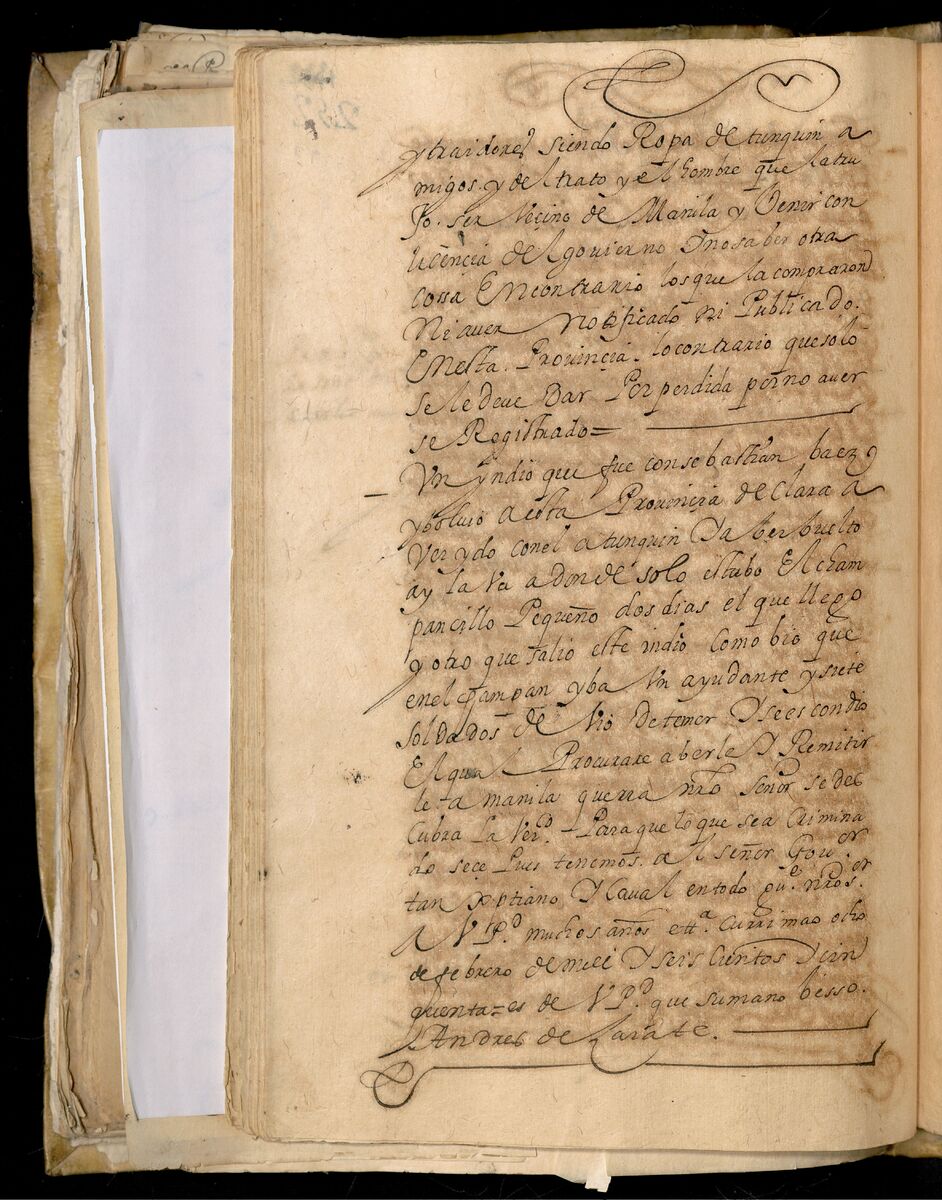 ytraidores siendo Ropa de tunquin a
migos. y del trato y el hombre que la tru
Jo. ser Veçino de Manila y Venir con
licencia del govierno Y no saber otra
Cossa En contrario los que la compraron
Ni aver notificado ni Publicado.
En esta. Provincia. lo contrario que solo
se le deve Dar Por perdida por no aver
se Registrado=
Un yndio que fue con sebastian baez
y bolvio a esta Provincia declara a
Ver ydo con el a tunquin Y a ber buelto
ay la Va a donde solo estubo El cham
pancillo Pequeño dos dias el que llego
y otro que salio este indio como bio que
en el champan yba Un ayudante y siete
soldados de Vio de temer Y se escondio
El qual Procurare a berle Y Remitir
le a manila querra nro señor se des
Cubra la Verd. Para que lo que sea Crimina
do sece Pues tenemos. al señor Gover.
tan xptiano Y Caval en todo gue. nro sr.
A V Pd. muchos años etta. Currimao ocho
de febrero de mill Y seis Cientos Y cin
quenta = es de V Pd. que su mano besso.
Andres de Zarate.